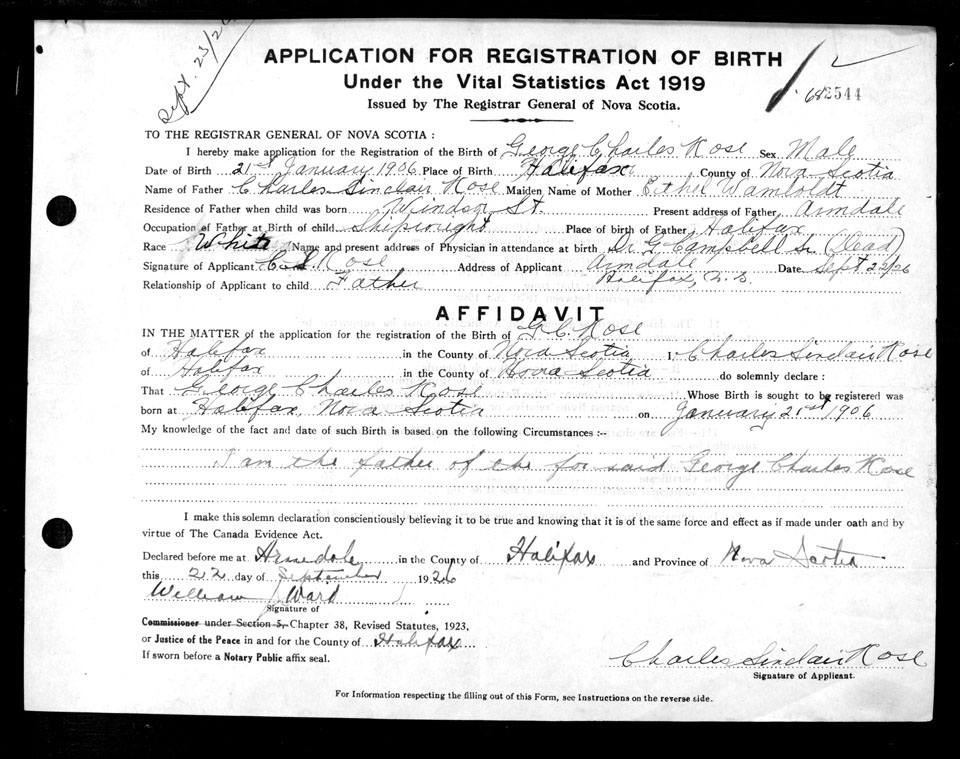 Sept. 23/26
APPLICATION FOR REGISTRATION OF BIRTH
Under the Vital Statistics Act 1919
Issued by The Registrar General of Nova Scotia.
682544
TO THE REGISTRAR GENERAL OF NOVA SCOTIA:
I hereby make application for the Registration of the Birth of George Charles Rose Sex Male
Date of Birth 21st January 1906 Place of Birth Halifax County of Nova Scotia
Name of Father Charles Sinclair Rose Maiden Name of Mother Ethel Wamboldt
Residence of Father when child was born Windsor St. Present address of Father Armdale
Occupation of Father at Birth of child Shipwright Place of birth of Father Halifax
Race White Name and present address of Physician in attendance at birth Dr G. Campbell Sr (dead)
Signature of Applicant C. S. Rose Address of Applicant Armdale Date Sept 22/26
Relationship of Applicant to child Father Halifax, N. S.
AFFIDAVIT
IN THE MATTER of the application for the registration of the Birth of G. C. Rose
of Halifax in the County of Nova Scotia I, Charles Sinclair Rose
of Halifax in the County of Nova Scotia do solemnly declare:
That George Charles Rose Whose Birth is sought to be registered was
born at Halifax, Nova Scotia on January 21st 1906
My knowledge of the fact and date of such Birth is based on the following Circumstances:-
I am the father of the for said George Charles Rose
I make this solemn declaration conscientiously believing it to be true and knowing that it is of the same force and effect as if made under oath and by
virtue of The Canada Evidence Act.
Declared before me at Armdale in the County of Halifax and Province of Nova Scotia
this 22 day of September 1926
William J Ward
Signature of
Commissioner under Section 5, Chapter 38, Revised Statutes, 1923,
or Justice of the Peace in and for the County of Halifax
If sworn before a Notary Public affix seal.
Charles Sinclair Rose
Signature of Applicant.
For Information respecting the filling out of this Form, see Instructions on the reverse side.